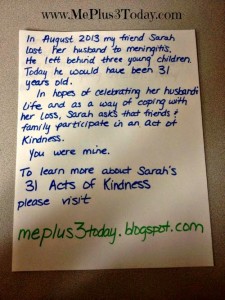 www.MePlus3Today.com
In August 2013 my friend Sarah
lost her husband to meningitis.
He left behind three young children.
Today he would have been 31
years old.
In hopes of celebrating her husbands
life and as a way of coping with
her loss, Sarah asks that friends &
family participate in an act of
Kindness.
You were mine.
To learn more about Sarah's
31 Acts of Kindness
please visit
meplus3today.blogspot.com